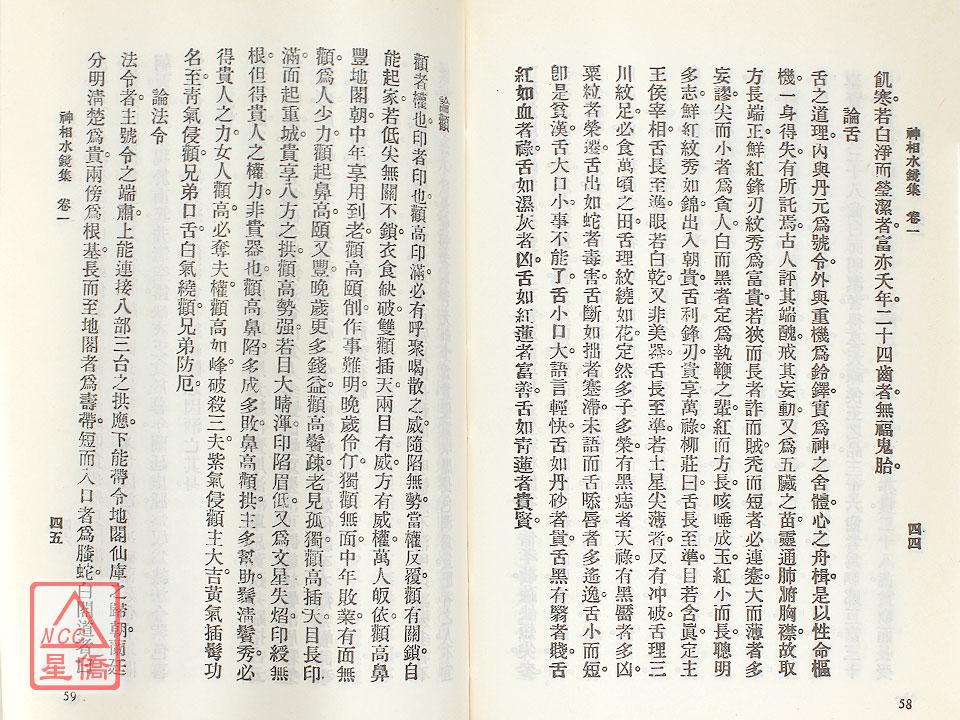 神相水鏡集 卷一
四四
飢寒若白淨而瑩潔者富亦夭年二十四齒者無福鬼胎
論舌
舌之道理內與丹元為號令外與重機為鈴鐸賁為神之舍體心之舟楫是以性命樞
機一身得失有所託焉古人評其端醜戒其妄動又為五臟之苗靈通肺腑胸襟故取
方長端正鮮紅鋒刃紋秀為富貴若狹而長者詐而賊禿而短者必連蹇大而薄者多
妄謬尖而小者為貪人白而黑者定為執鞭之輩紅而方長咳唾成玉紅小而長聰明
多志鮮紅紋秀如錦出入朝貴舌利鋒刃貴享萬祿柳莊曰舌長至準目若含真定主
王侯宰相舌長至準眼若白乾又非美器舌長至準若土星尖薄者反有冲破舌理三
川紋足必食萬頃之田舌理紋繞如花定然多子多榮有黑痣者天祿有黑靨者多凶
粟粒者榮遷舌出如蛇者毒害舌斷如拙者蹇滯未語而舌䑛唇者多遙逸舌小而短
卽是貧漢舌大口小事不能了舌小口大語言輕快舌如丹砂者貴舌黑有翳者賤舌
紅如血者祿舌如濕灰者凶舌如紅蓮者富善舌如青蓮者貴賢
58
論顴
顴者權也印者印也顴高印滿必有呼聚喝散之威隨陷無勢當權反覆顴有關鎖自
能起家若低尖無關不鎖衣食缺破雙顴插天兩目有威方有威權萬人皈依顴高鼻
豐地閣朝中年享用到老顴高頤削作事難明晚歲伶仃獨顴無面中年敗業有面無
顴為人少力顴起鼻高頤又豐晚歲更多錢益顴高鬢疎老見孤獨顴高插天目長印
滿面起重城貴享八方之拱顴高勢强若目大睛渾印陷眉低又為文星失焰印綬無
根但得貴人之權力非貴器也顴高鼻陷多成多敗鼻高顴拱主多幫助鬚清鬢秀必
得貴人之力女人顴高必奪夫權顴高如峰破殺三夫紫氣侵顴主大吉黃氣插鬢功
名至靑氣侵顴兄弟口舌白氣繞顴兄弟防厄
論法令
法令者主號令之端肅上能連接八部三台之拱應下能帶令地閣仙庫之歸朝蘭廷
分明清楚為貴兩傍為根基長而至地閣者為壽帶短而入口者為螣蛇曰閣道者
神相水鏡集 卷一
四五
59
NCC
星僑